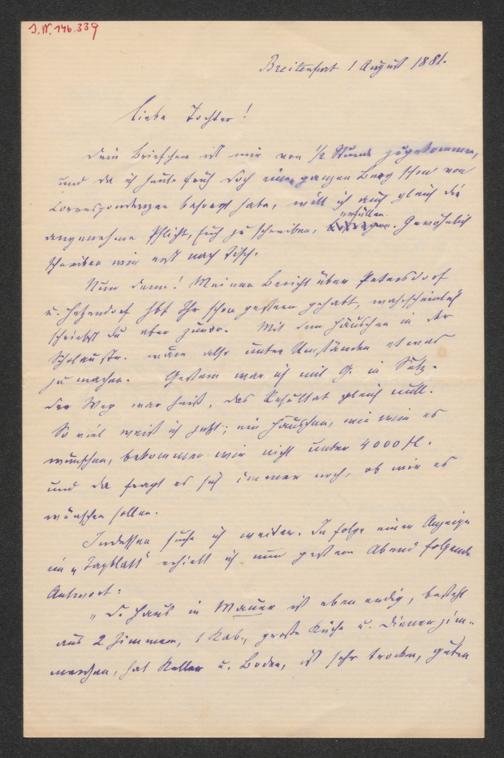 J.N. 146.339
Breitenfurt 1 August 1881.
Liebe Tochter!
Dein Briefchen ist mir vor 1/2 Stunde zugekommen,
und da ich heute früh doch einen ganzen Berg schon von
Correspondenzen besorgt habe, will ich auch gleich die
angenehme Pflicht, Euch zu schreiben, erfüllen. Gewöhnlich
schreiben wir erst nach Tisch.
Nun denn! Meinen Bericht über Petersdorf
u. Hetzendorf habt Ihr schon gestern gehabt, wahrscheinlich
schriebst Du aber zuvor. Mit dem Häuschen in der
wäre also unter Umständen etwas
zu machen. Gestern war ich mit G. in
Der Weg war heiß, das Resultat gleich null.
So viel weiß ich jetzt; ein Häuschen, wie wir es
wünschen, bekommen wir nicht unter 4000 fl.
und da fragt es sich immer noch, ob wir es
wünschen sollen.
Indessen suche ich weiter. In folge einer Anzeige
im „Tagblatt" erhielt ich nun gestern Abend folgende
Antwort:
„D. Haus in Mauer ist ebenerdig, besteht
aus 2 Zimmern, 1 Kab., große Küche u. Dienerzim-
merchen, hat Keller u. Boden, ist sehr trocken, guten